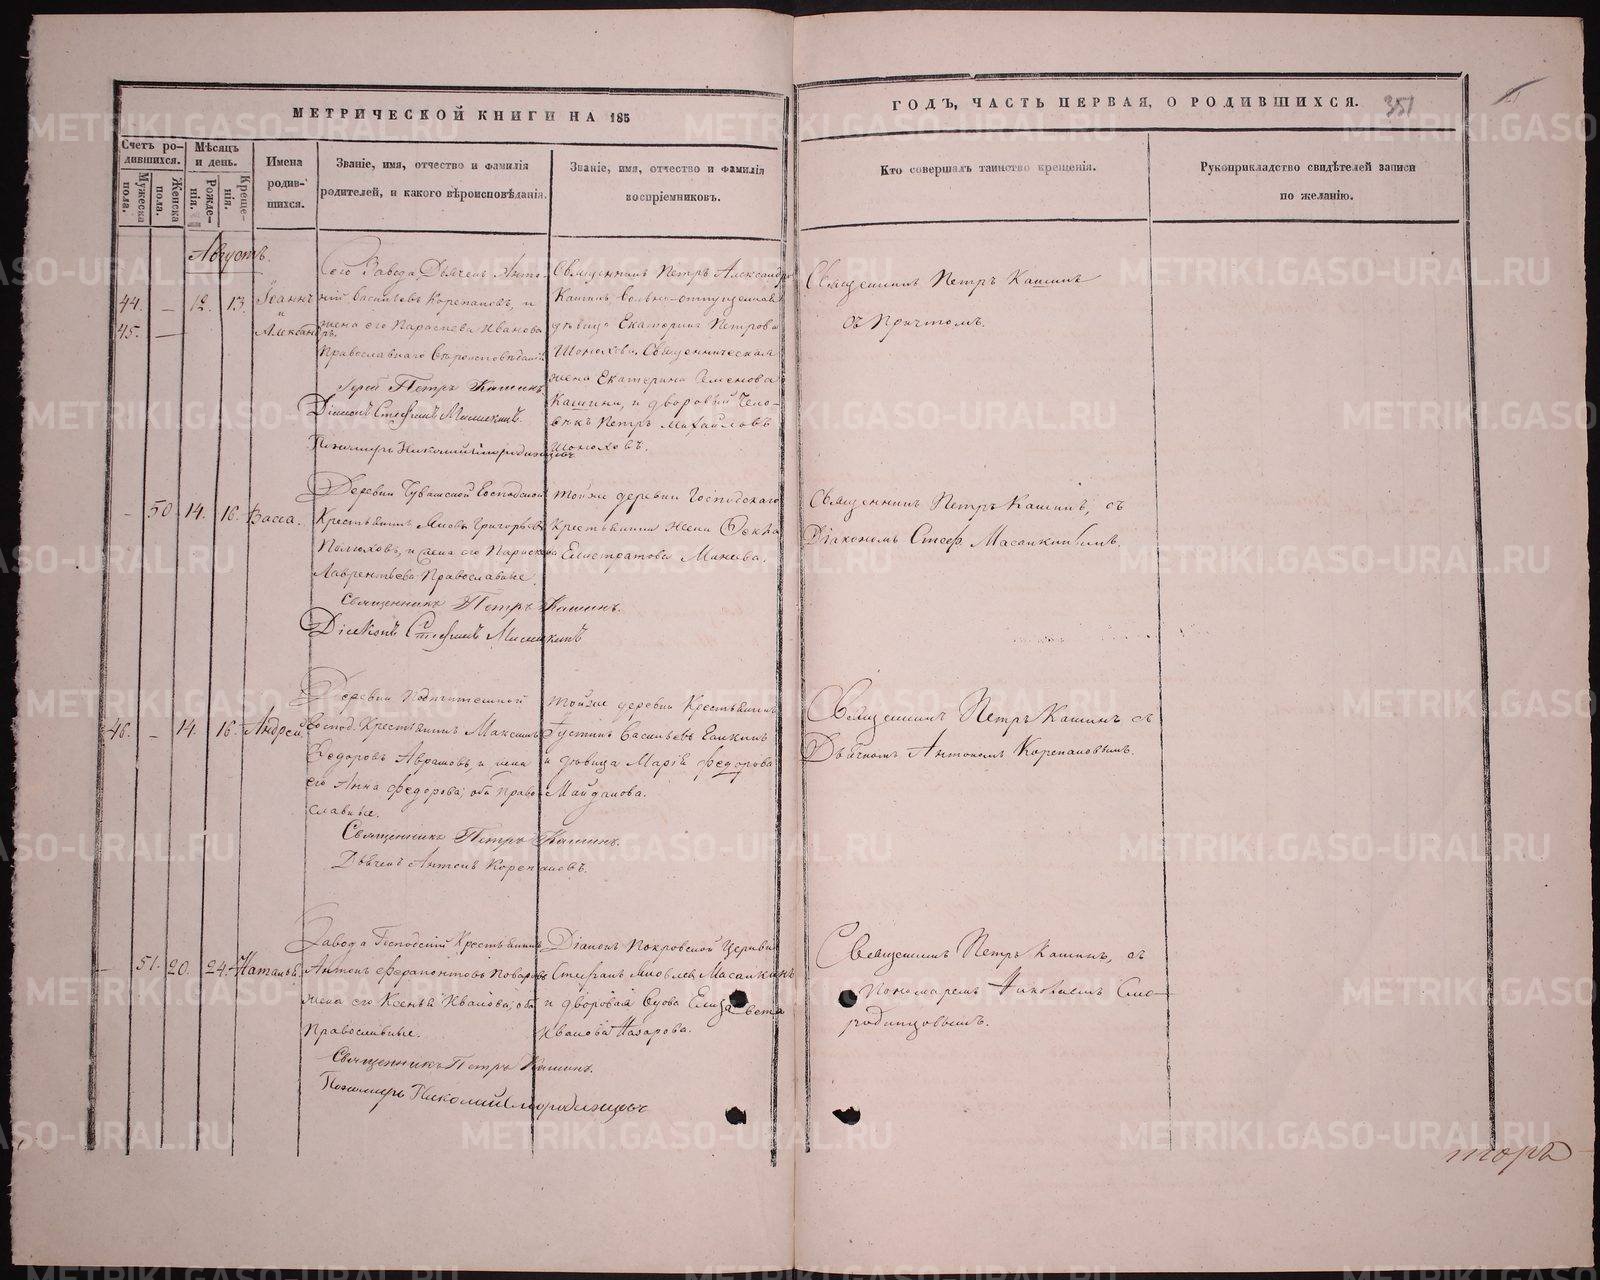 МЕТРИЧЕСКОЙ КНИГИ НА 185
ГОДЪ, ЧАСТЬ ПЕРВАЯ, О РОДИВШИХСЯ.
351
Счетъ ро-
дившихся.
Мужеска
пола.
Женска
пола.
Мѣсяцъ
и день.
Рожде-
нія.
Креще-
нія.
Имена
родив-
шихся.
Званіе, имя, отчество и фамилія
родителей, и какого вѣроисповѣданія.
Званіе, имя, отчество и фамилія
воспріемниковъ.
Кто совершалъ таинство крещенія.
Рукоприкладство свидѣтелей записи
по желанію.
Августъ.
44.
45.
—
12.
13.
Іоаннъ
и
Александръ.
Сего Завода Дьячекъ Анто-
ній Васильевъ Корепановъ, и
жена его Параскева Иванова
Православнаго Вѣроисповѣданія
Іерей Петръ Кашинъ
Діаконъ Стефанъ
Пономарь Николай Смородинцовъ
Священникъ Петръ Александр
Кашинъ вольно-отпущенная
дѣвица Екатерина Петрова
Шонохова. Священническая
жена Екатерина Семенова
Кашина, и дворовый Чело-
вѣкъ Петръ Михайловъ
Шонохов.
Священникъ Петръ Кашинъ
съ Причтомъ.
—
50
14.
16.
Васса.
Деревни Чувашской Господской
Крестьянинъ Яковъ Григорьевъ
и жена его Параскева
Лаврентьева Православные.
Священникъ Петръ Кашинъ.
Діаконъ Стефанъ Масалкинъ
Тойже деревни Господскаго
Крестьянина жена Ѳекла
Елистратова Минѣева.
Священникъ Петръ Кашинъ, съ
Діакономъ Стеф. Масалкинымъ.
46.
—
14.
16.
Андрей
Деревни
Господ. Крестьянинъ Максимъ
Ѳедоровъ Аврамовъ, и жена
его Анна Федорова; оба Право-
славные.
Священникъ Петръ Кашинъ.
Дьячекъ Антонъ Корепановъ.
Тойже деревни Крестьянинъ
Густинъ Васильевъ Елькинъ
и дѣвица Марія Федорова
Майданова.
Священникъ Петръ Кашинъ съ
Дьячкомъ Антономъ Корепановымъ.
—
51.
20.
24.
Наталья
Завода Господскій Крестьянинъ
Антонъ Ферапонтовъ Поваровъ
жена его Ксенія Иванова; оба
Православные.
Священникъ Петръ Кашинъ.
Пономарь Николай Смородинцовъ
Діаконъ Покровской Церкви
Стефанъ Яковлевъ Масалкинъ
и дворовая вдова Елизавета
Иванова Назарова.
Священникъ Петръ Кашинъ, съ
Пономаремъ Николаемъ Смо-
родинцовымъ.
торъ
METRIKI.GASO-URAL.RU